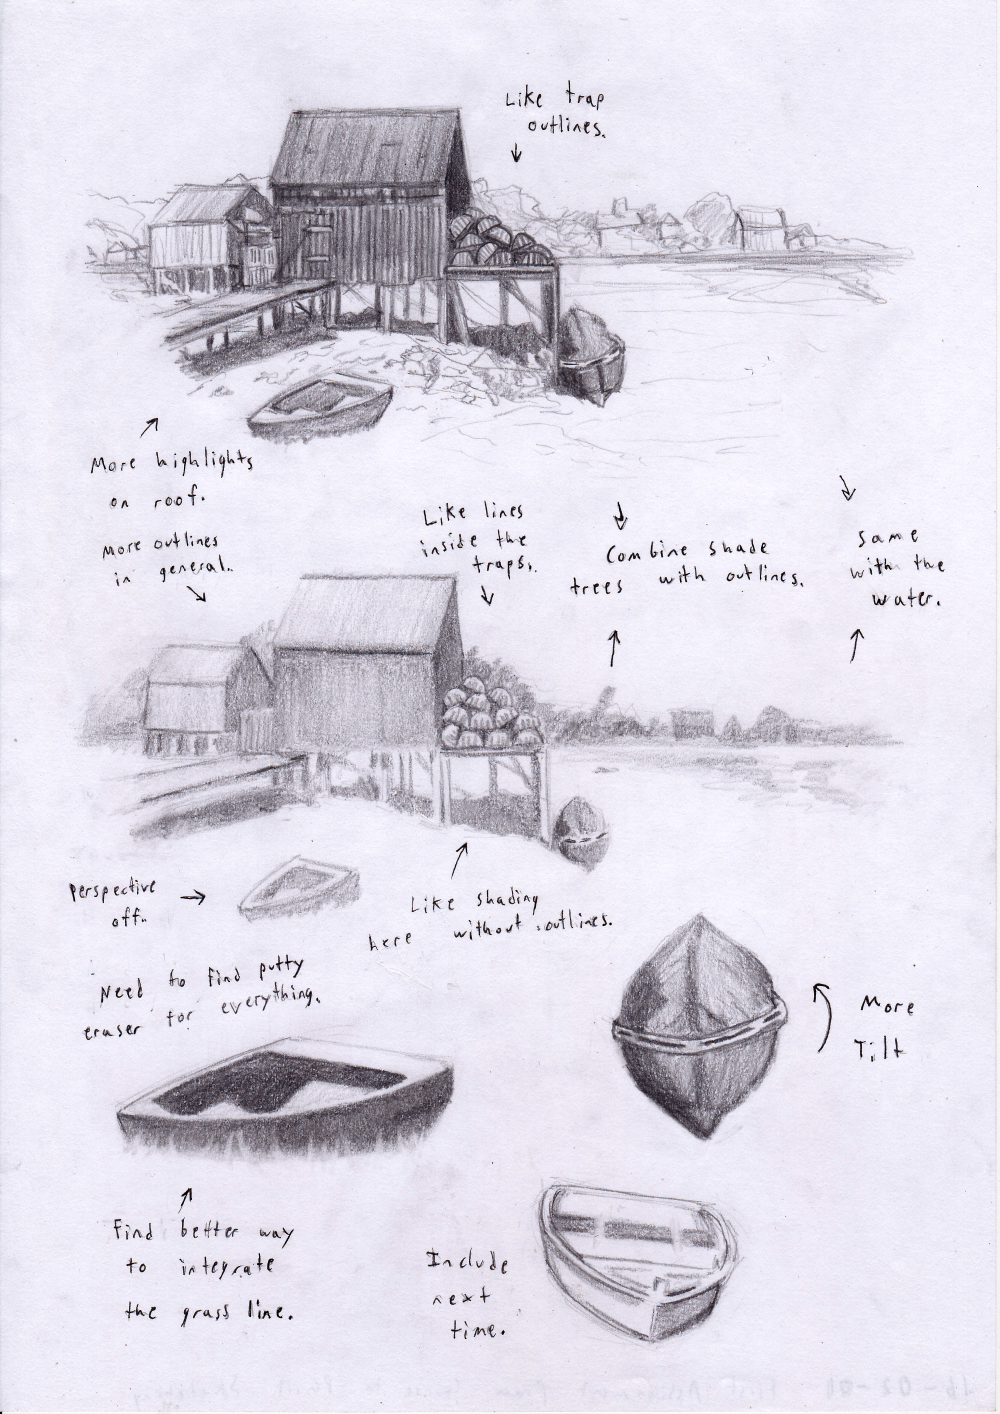 Like trap
outlines.
More highlights
on roof.
More outlines
in general.
Like lines
inside the
traps.
Combine shade
trees with outlines.
Same
with the
water.
Perspective
off.
Like shading
here without outlines.
Need to find putty
eraser for everything.
More
Tilt
Find better way
to integrate
the grass line.
Include
next
time.